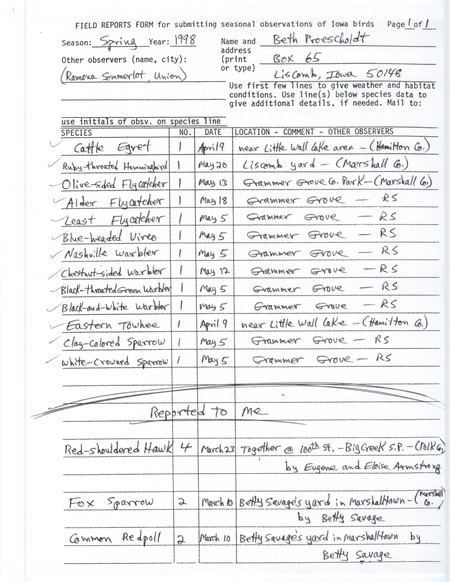 FIELD REPORTS FORM for submitting seasonal observations of Iowa birds Page 1 of 1
Season: Spring Year: 1998 Name and Beth Proescholdt
Other observers (name, city): address Box 65
(Ramona Sommerlot, Union) (print or type) Liscomb, Iowa 50148
Use first few lines to give weather and habitat
conditions. Use line(s) below species data to
give additional details, if needed. Mail to:
use initials of obsv. on species line
SPECIES NO. DATE LOCATION - COMMENT - OTHER OBSERVERS
Cattle Egret 1 April 9 near Little Wall Lake area - (Hamilton Co.)
Ruby-throated Hummingbird 1 May 20 Liscomb yard - (Marshall Co.)
Olive-sided Flycatcher 1 May 13 Grammer Grove Co. Park - (Marshall Co.)
Alder Flycatcher 1 May 18 Grammer Grove - RS
Least Flycatcher 1 May 5 Grammer Grove - RS
Blue-headed Vireo 1 May 5 Grammer Grove - RS
Nashville Warbler 1 May 5 Grammer Grove - RS
Chestnut-sided Warbler 1 May 12 Grammer Grove - RS
Black-throated Green Warbler 1 May 5 Grammer Grove - RS
Black-and-White Warbler 1 May 5 Grammer Grove - RS
Eastern Towhee 1 April 9 near Little Wall Lake - (Hamilton Co.)
Clay-colored Sparrow 1 May 5 Grammer Grove - RS
White-crowned Sparrow 1 May 5 Grammer Grove - RS
Reported to me
Red-shouldered Hawk 4 March 23 Together @ 100th St. - Big Creek S.P. - (Polk Co.)
by Eugene and Eloise Armstrong
Fox Sparrow 2 March 10 Betty Savage's yard in Marshalltown - (Marshall Co.)
by Betty Savage
Common Redpoll 2 March 10 Betty Savage's yard in Marshalltown by
Betty Savage